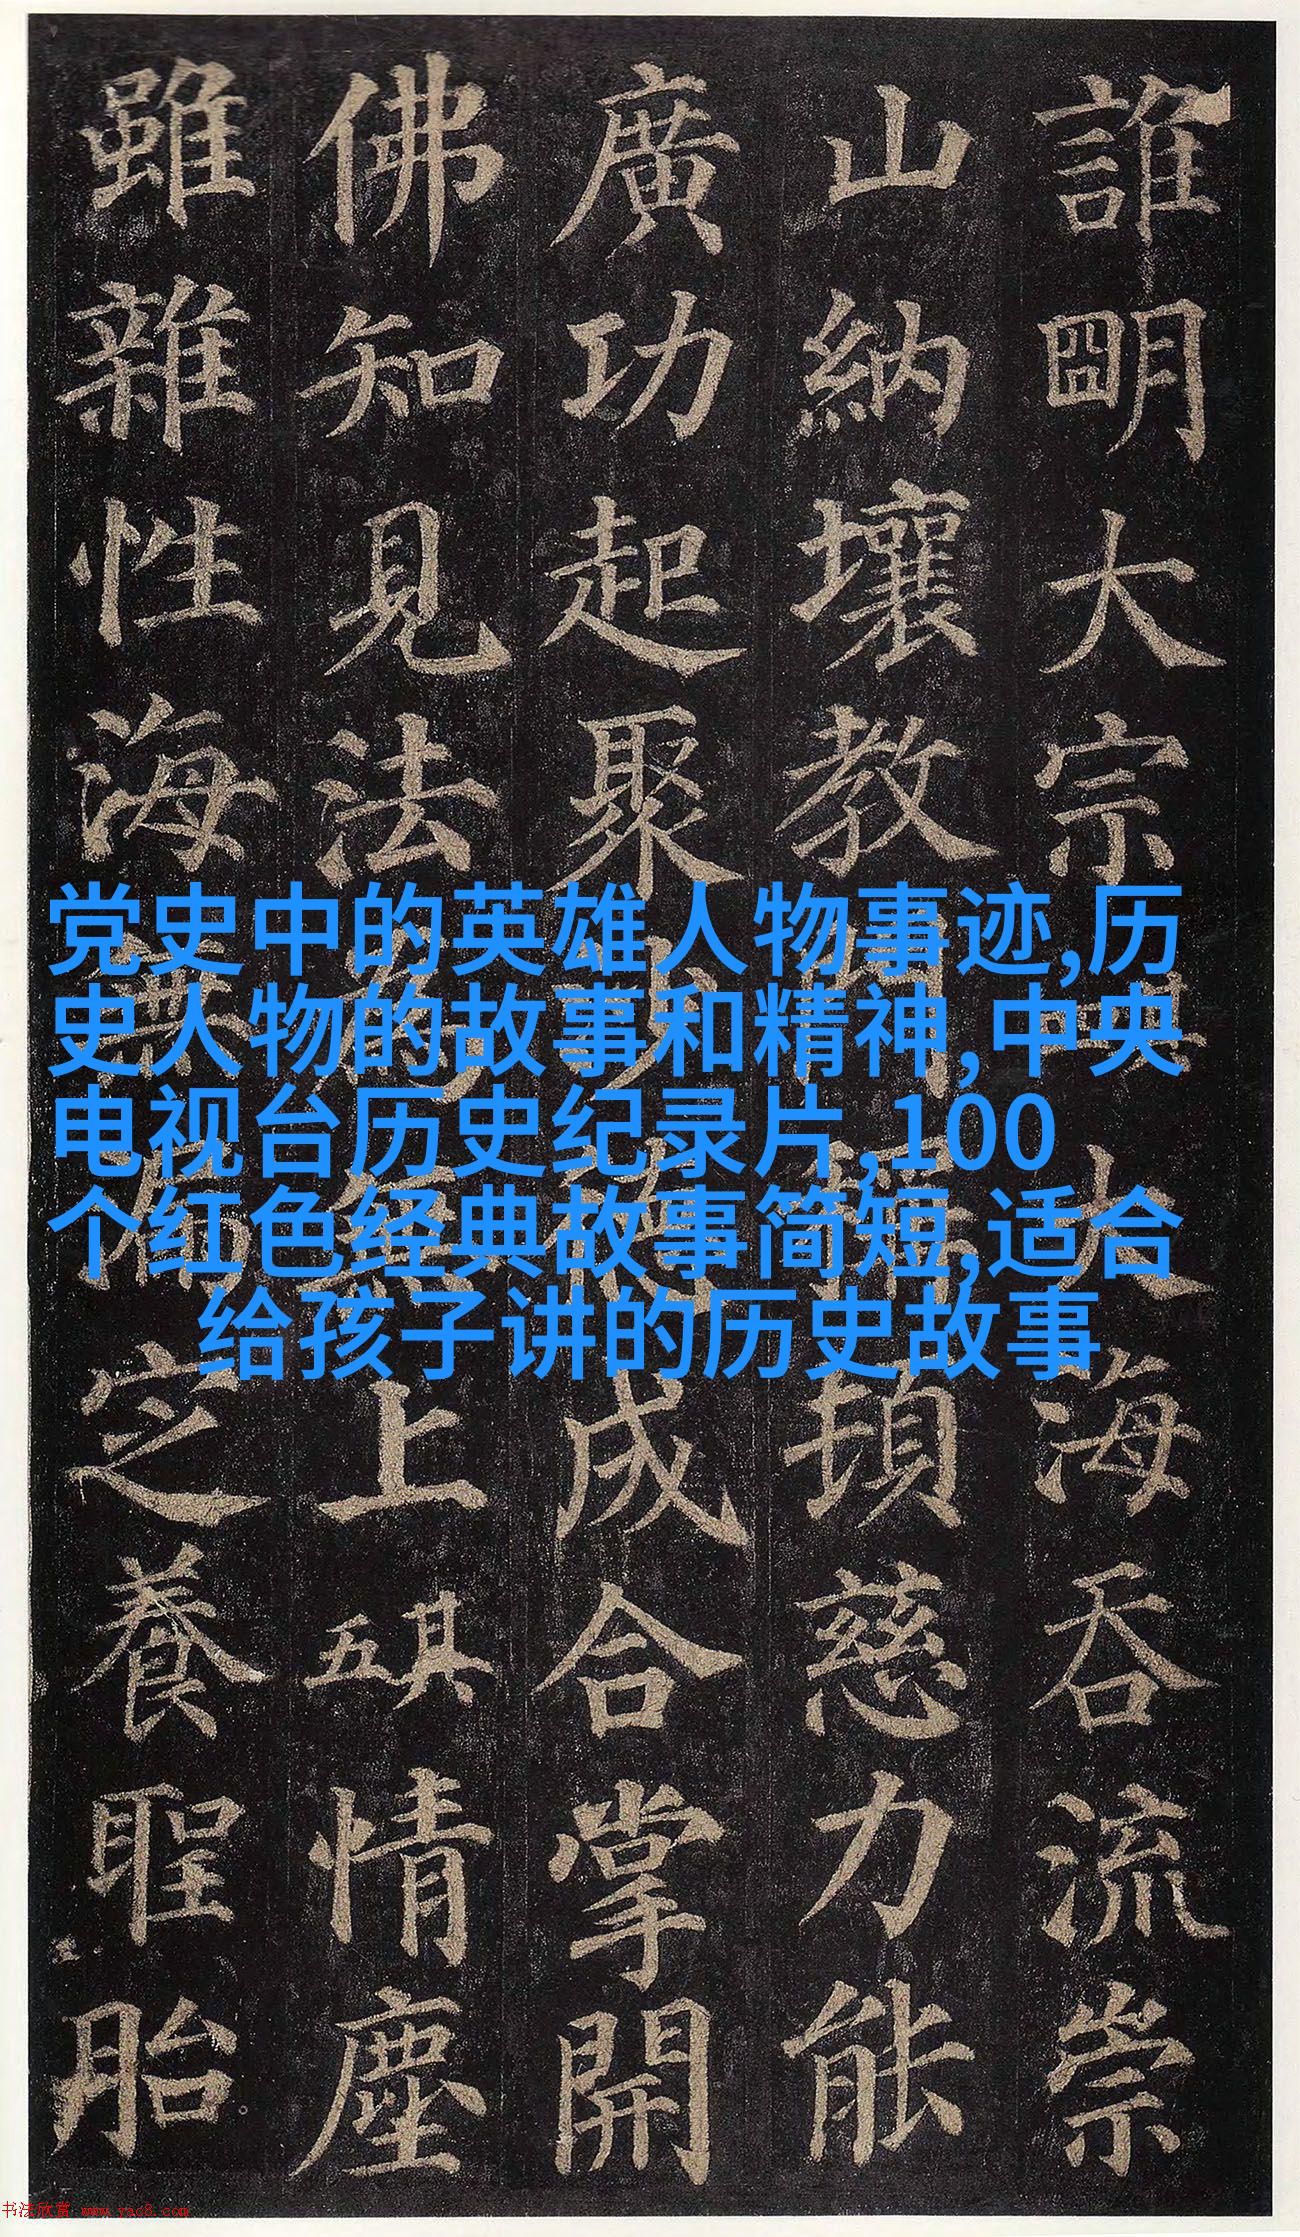 誰明大宗大海吞流崇
山納壤教門稱頓慈力能
廣功起聚沙德成合掌開
佛知見法為無上其五情塵
雖雜性海無漏定養聖胎
党史中的英雄人物事迹,历
史人物的故事和精神,中央
电视台历史纪录片,100
个红色经典故事简短,适合
给孩子讲的历史故事
书法欣赏 www.yac8.com